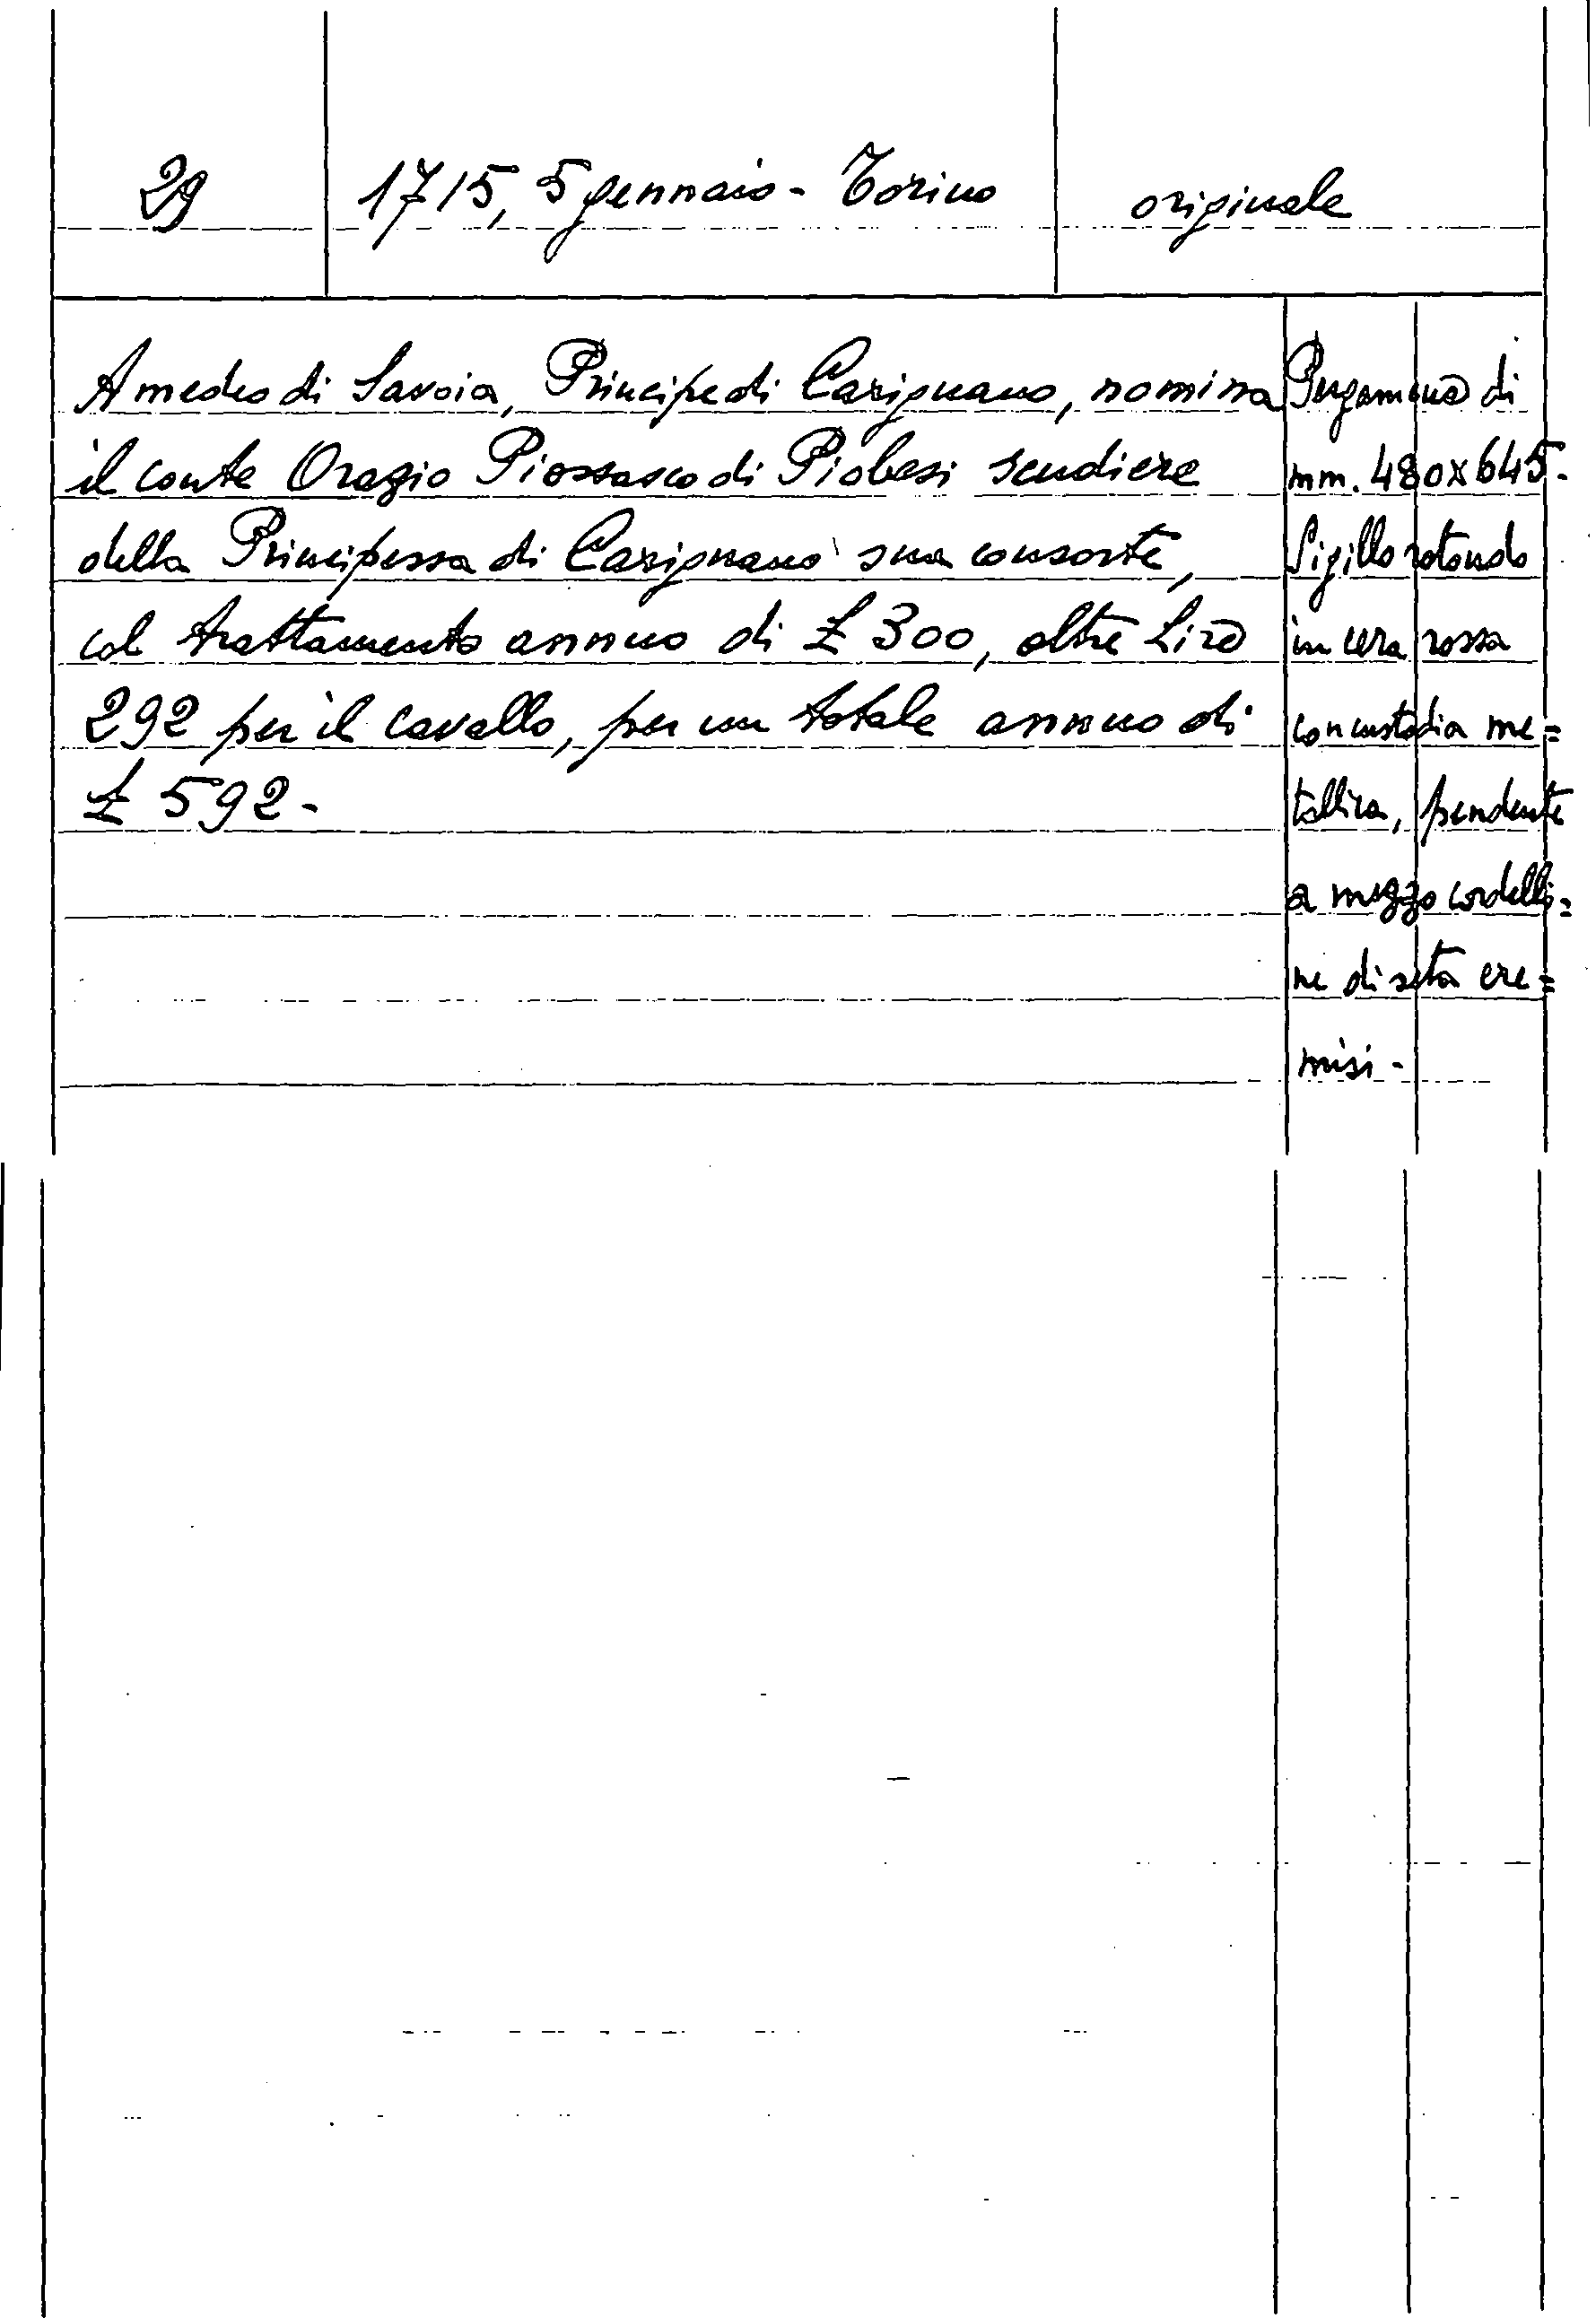 29
1715, 5 gennaio - Torino
originale
Amedeo di Savoia, Principe di Carignano, nomina
il conte Orazio Piossasco di Piobesi scudiere
della Principessa di Carignano sua consorte,
col trattamento annuo di £ 300, oltre Lire
292 per il cavallo, per un totale annuo di
£ 592-
Pergamena di
mm. 480x645-
Sigillo rotondo
in cera rossa
con custodia me=
tallica, pendente
a mezzo cordelli=
ne di seta cre=
misi-